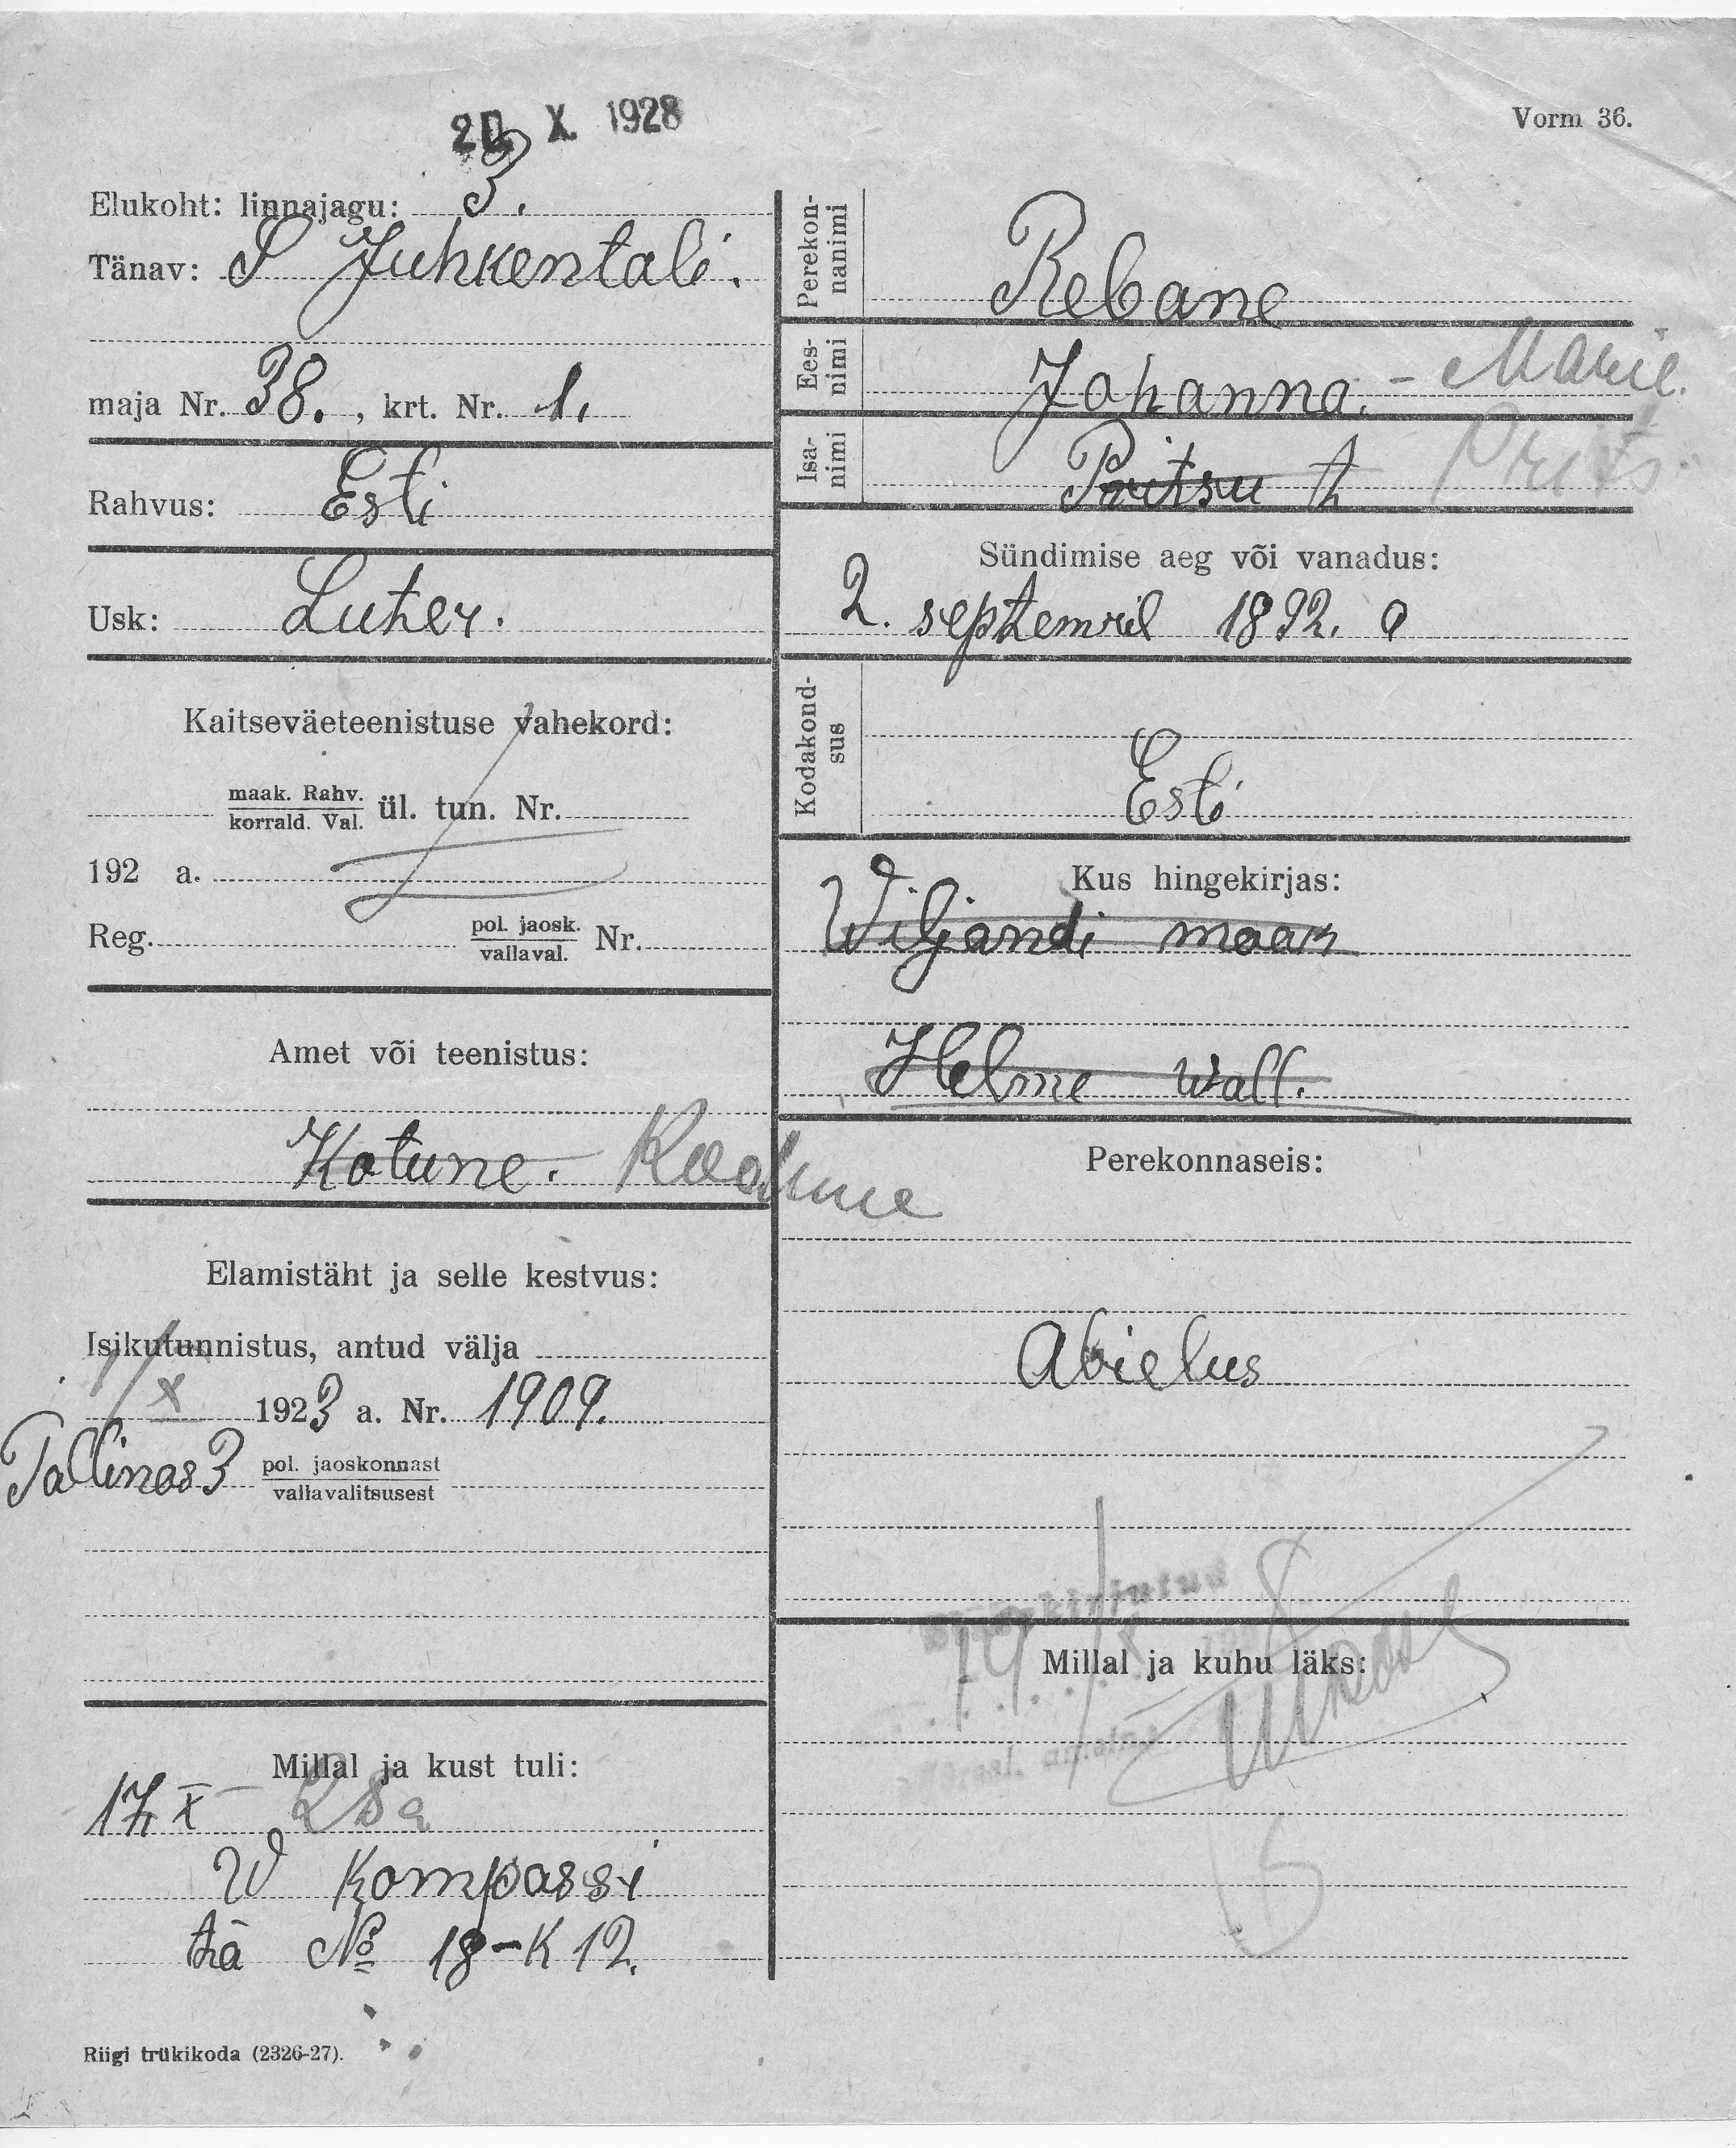 20 X. 1928
Vorm 36.
Elukoht: linnajagu: 3.
Tänav: S Juhkentali.
maja Nr. 38. , krt. Nr. 1.
Rahvus: Esti
Usk: Luther.
Kaitseväeteenistuse vahekord:
maak. Rahv.
korrald. Val. ül. tun. Nr.
192 a.
Reg. pol. jaosk.
vallaval. Nr.
Amet või teenistus:
Kotune.
Elamistäht ja selle kestvus:
Isikutunnistus, antud välja
1/X 1923 a. Nr. 1909.
Tallinas 3 pol. jaoskonnast
vallavalitsusest
Millal ja kust tuli:
17 X 28 a
W Kompassi
tä № 18-K 12.
Riigi trükikoda (2326-27).
Perekon-
nanimi
Rebane
Ees-
nimi
Johanna. - Marie.
Isa-
nimi
Pritsu t. Prits
Sündimise aeg või vanadus:
2. septemril 1892. a
Kodakond-
sus
Esti
Kus hingekirjas:
Wiljandi maak
Helme wall.
Perekonnaseis:
Abielus
Millal ja kuhu läks: